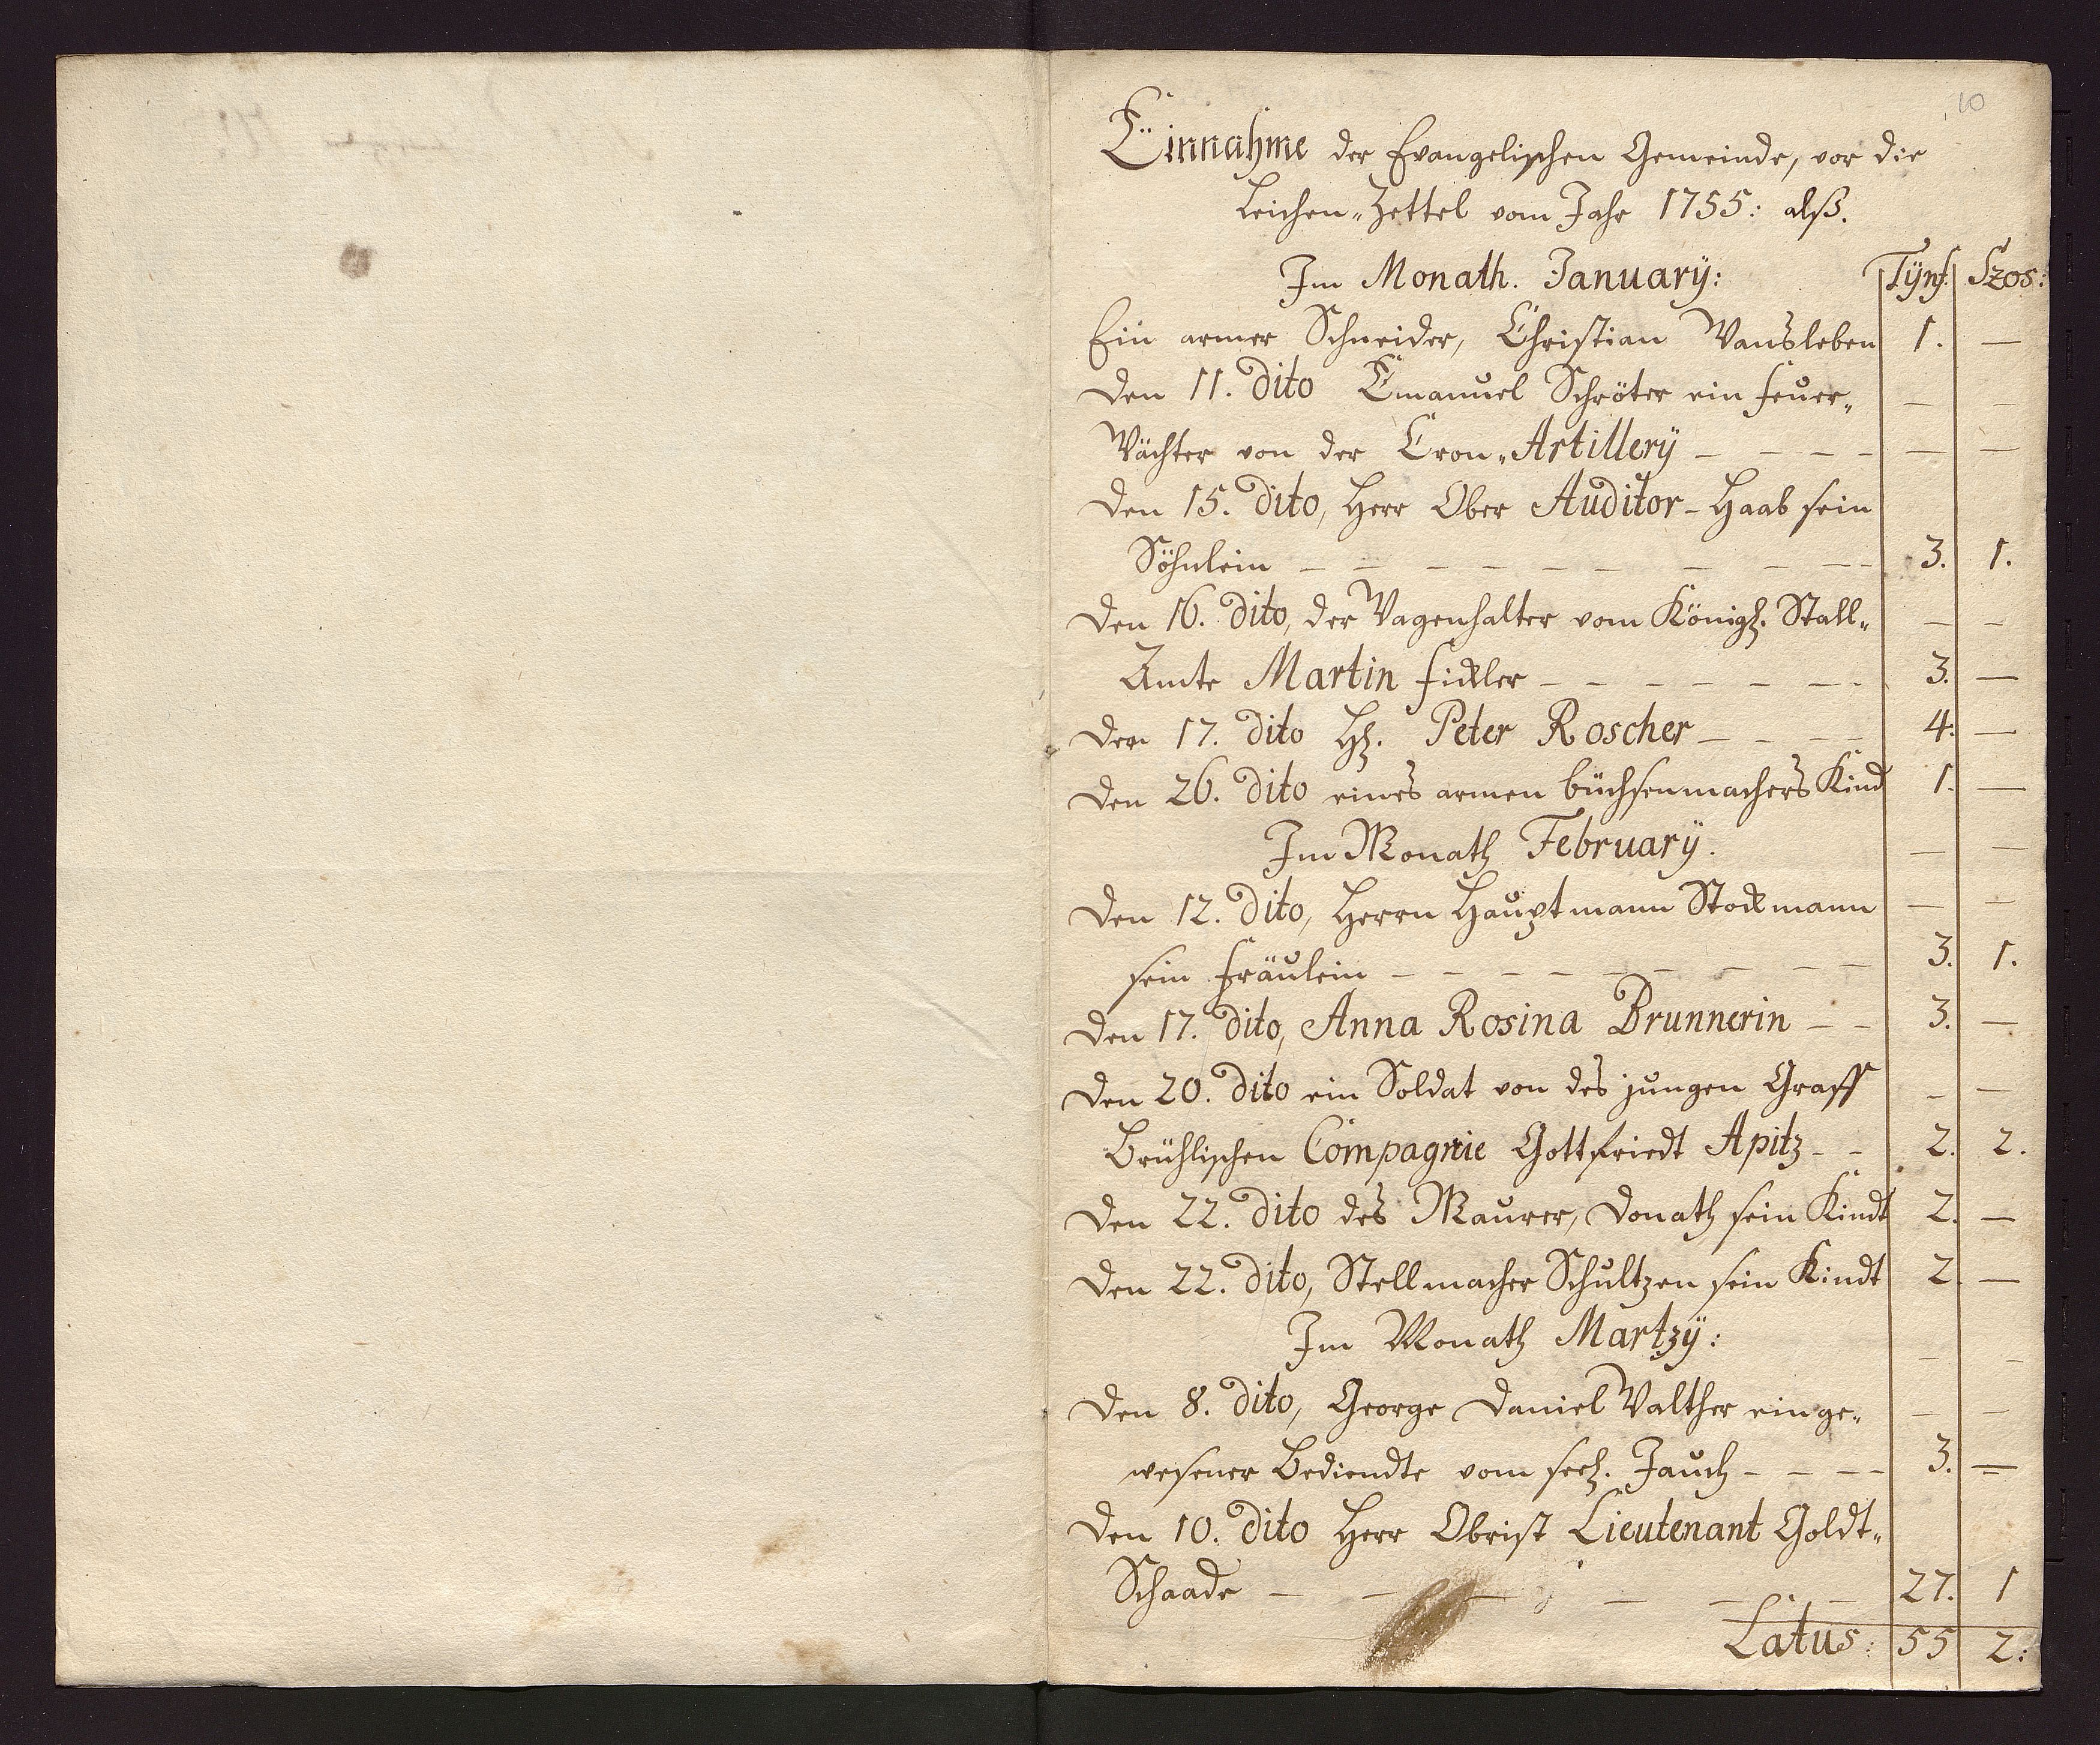 10
Einnahme der Evangelischen Gemeinde, vor die
Leichen-Zettel vom Jahr 1755: alß.
Im Monath. January: Tÿnf. Szos:
Ein armer Schneider, Christian Wansleben 1. —
den 11. dito Emanuel Schröter ein Feuer- — —
Wächter von der Cron-Artillerÿ — — — — — —
den 15. dito, Herr Ober Auditor-Haab sein
Söhnlein — — — — — — — — — 3. 1.
den 16. dito, der Wagenhalter vom Königl. Stall- — —
Amte Martin Fickler — — — — — — — 3. —
den 17. dito H. Peter Roscher — — — 4: —
den 26. dito eines armen büchsenmachers Kind 1. —
Im Monath Februarÿ. — —
den 12. dito, Herrn Hauptmann Stockmann — —
sein Fräulein — — — — — — — — — 3. 1.
den 17. dito, Anna Rosina Brunnerin — — 3. —
den 20. dito ein Soldat von des jungen Graff — —
Brühlischen Compagnie Gottfriedt Apitz - - 2. 2.
den 22. dito des Maurer, Donath sein Kindt 2. —
den 22. dito, Stellmacher Schultzen sein Kindt 2. —
Im Monath Martzÿ: — —
den 8. dito, George Daniel Walther ein ge- — —
wesener Bediendte vom seel. Jauch - — — — 3. —
den 10. dito Herr Obrist Lieutenant Goldt-
Schaade — — — — — — 27. 1
Latus: 55 2: